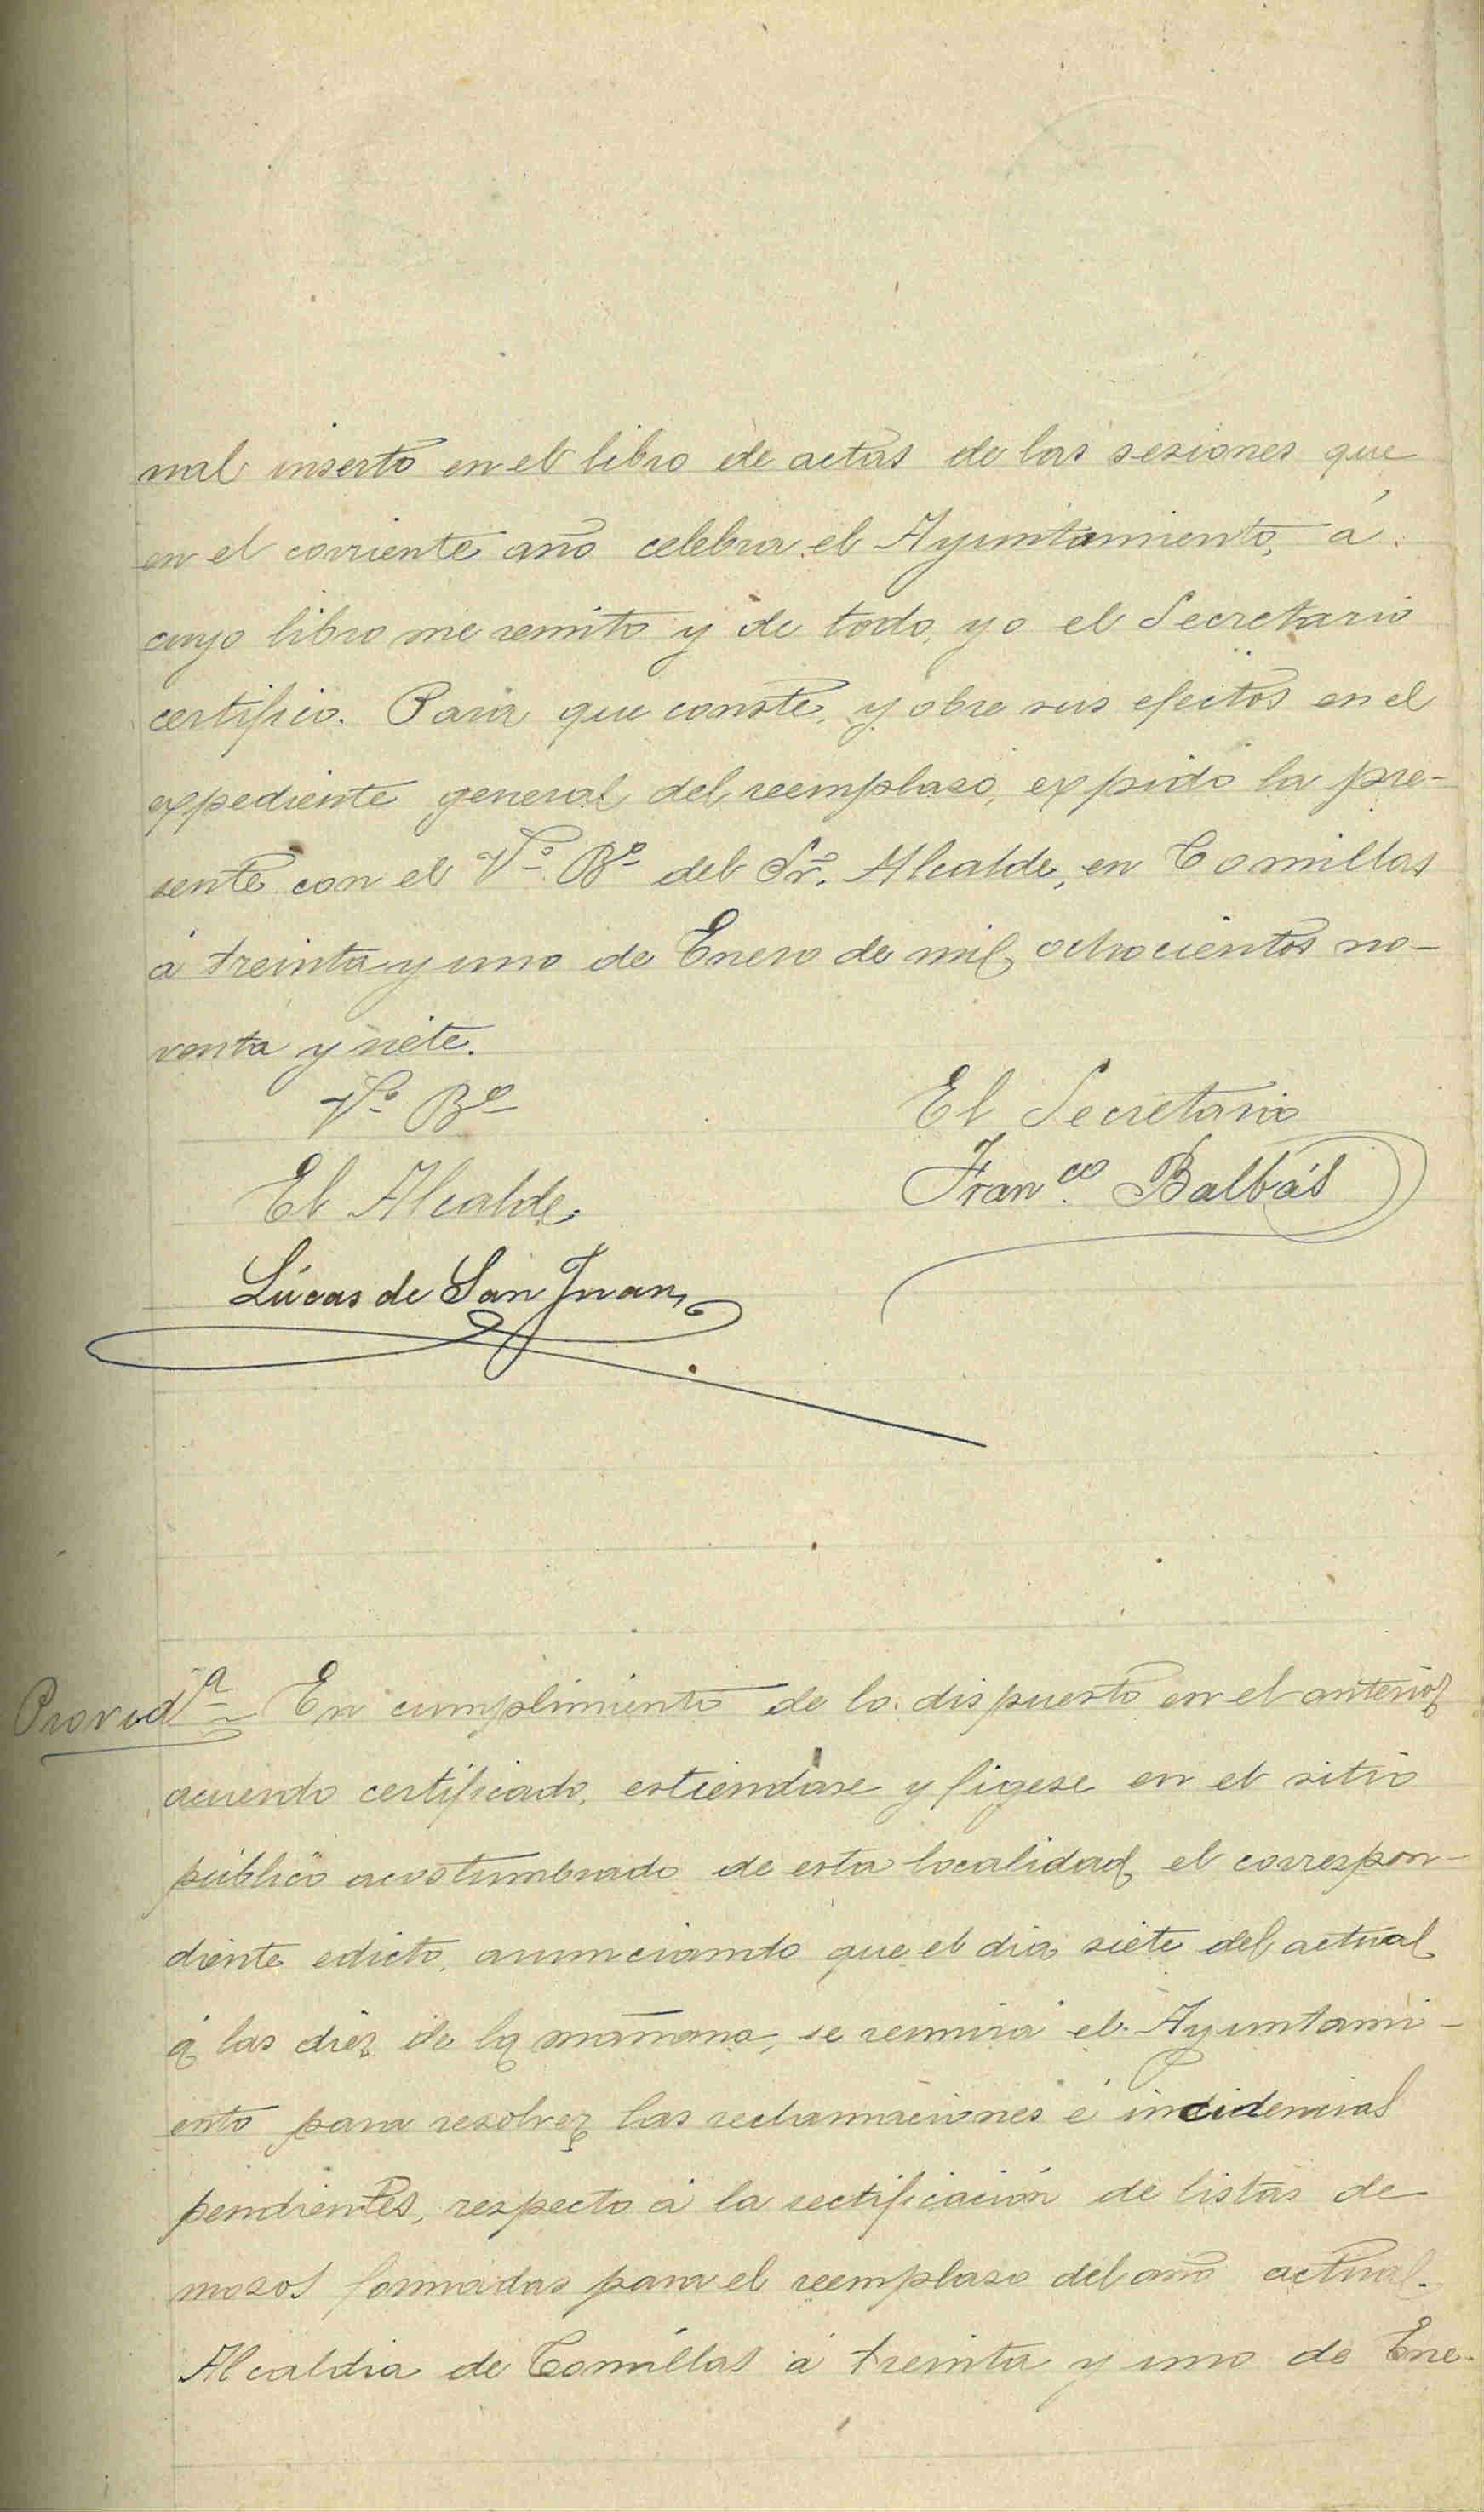 nal inserto en el libro de actas de las sesiones que
en el corriente año celebra el Ayuntamiento, á
cuyo libro me remito y de todo, yo el Secretario
certifico. Para que conste, y obre sus efectos en el
expediente general del reemplazo, expido la pre-
sente con el Vº Bº del Sr. Alcalde, en Comillas
á treinta y uno de Enero de mil ochocientos no-
venta y siete.
Vº Bº
El Secretario
El Alcalde
Franco. Balbás
Lúcas de San Juan
Provida En cumplimiento de lo dispuesto en el anterior
acuerdo certificado, estiendase y figese en el sitio
público acostumbrado de esta localidad el correspon-
diente edicto, anunciando que el dia siete del actual
á las diez de la mañana, se reunira el Ayuntami-
ento para resolver las reclamaciones é incidencias
pendientes, respecto á la rectificación de listas de
mozos formadas para el reemplazo del año actual.
Alcaldia de Comillas á treinta y uno de Ene-